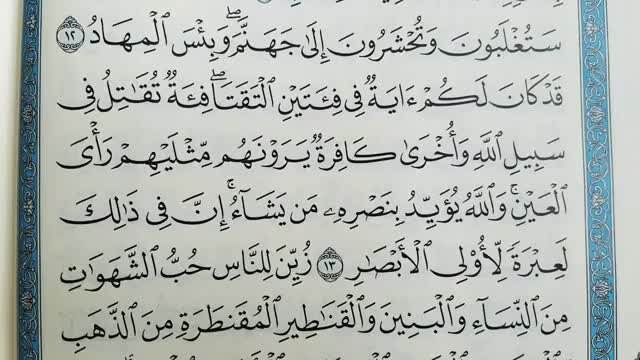 سَتُغْلَبُونَ وَتُحْشَرُونَ إِلَىٰ جَهَنَّمَۖ وَبِئْسَ ٱلْمِهَادُ ١٢
قَدْ كَانَ لَكُمْ ءَايَةٌ فِى فِئَتَيْنِ ٱلْتَقَتَاۖ فِئَةٌ تُقَٰتِلُ فِى
سَبِيلِ ٱللَّهِ وَأُخْرَىٰ كَافِرَةٌ يَرَوْنَهُم مِّثْلَيْهِمْ رَأْىَ
ٱلْعَيْنِۚ وَٱللَّهُ يُؤَيِّدُ بِنَصْرِهِۦ مَن يَشَآءُۚ إِنَّ فِى ذَٰلِكَ
لَعِبْرَةً لِّأُو۟لِى ٱلْأَبْصَٰرِ ١٣ زُيِّنَ لِلنَّاسِ حُبُّ ٱلشَّهَوَٰتِ
مِنَ ٱلنِّسَآءِ وَٱلْبَنِينَ وَٱلْقَنَٰطِيرِ ٱلْمُقَنطَرَةِ مِنَ ٱلذَّهَبِ